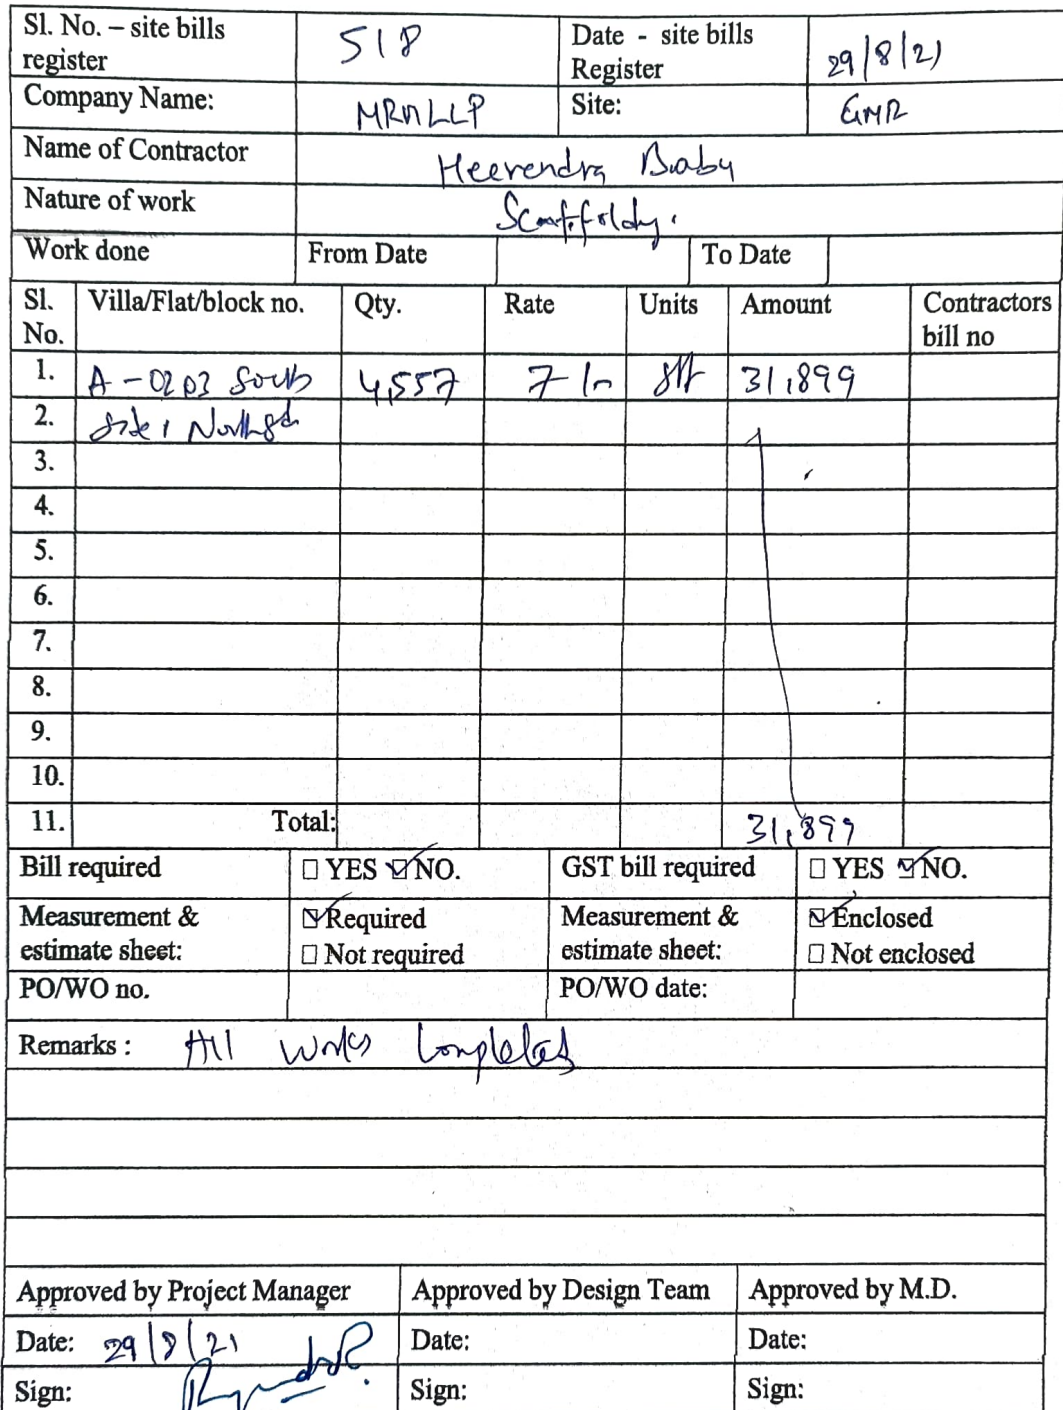 Sl. No. – site bills register 518 Date - site bills Register 29/8/21
Company Name: MRMLLP Site: GMR
Name of Contractor Heerendra Baby
Nature of work Scaffoldy.
Work done From Date To Date
Sl. No. Villa/Flat/block no. Qty. Rate Units Amount Contractors bill no
1. A-0203 South 4,557 7/- sft 31,899
2. side, North sd
3.
4.
5.
6.
7.
8.
9.
10.
11. Total: 31,899
Bill required ☐ YES ☑ NO. GST bill required ☐ YES ☑ NO.
Measurement & estimate sheet: ☑ Required Measurement & estimate sheet: ☑ Enclosed
☐ Not required ☐ Not enclosed
PO/WO no. PO/WO date:
Remarks : All works Completed
Approved by Project Manager Approved by Design Team Approved by M.D.
Date: 29/8/21 Date: Date:
Sign: Sign: Sign: